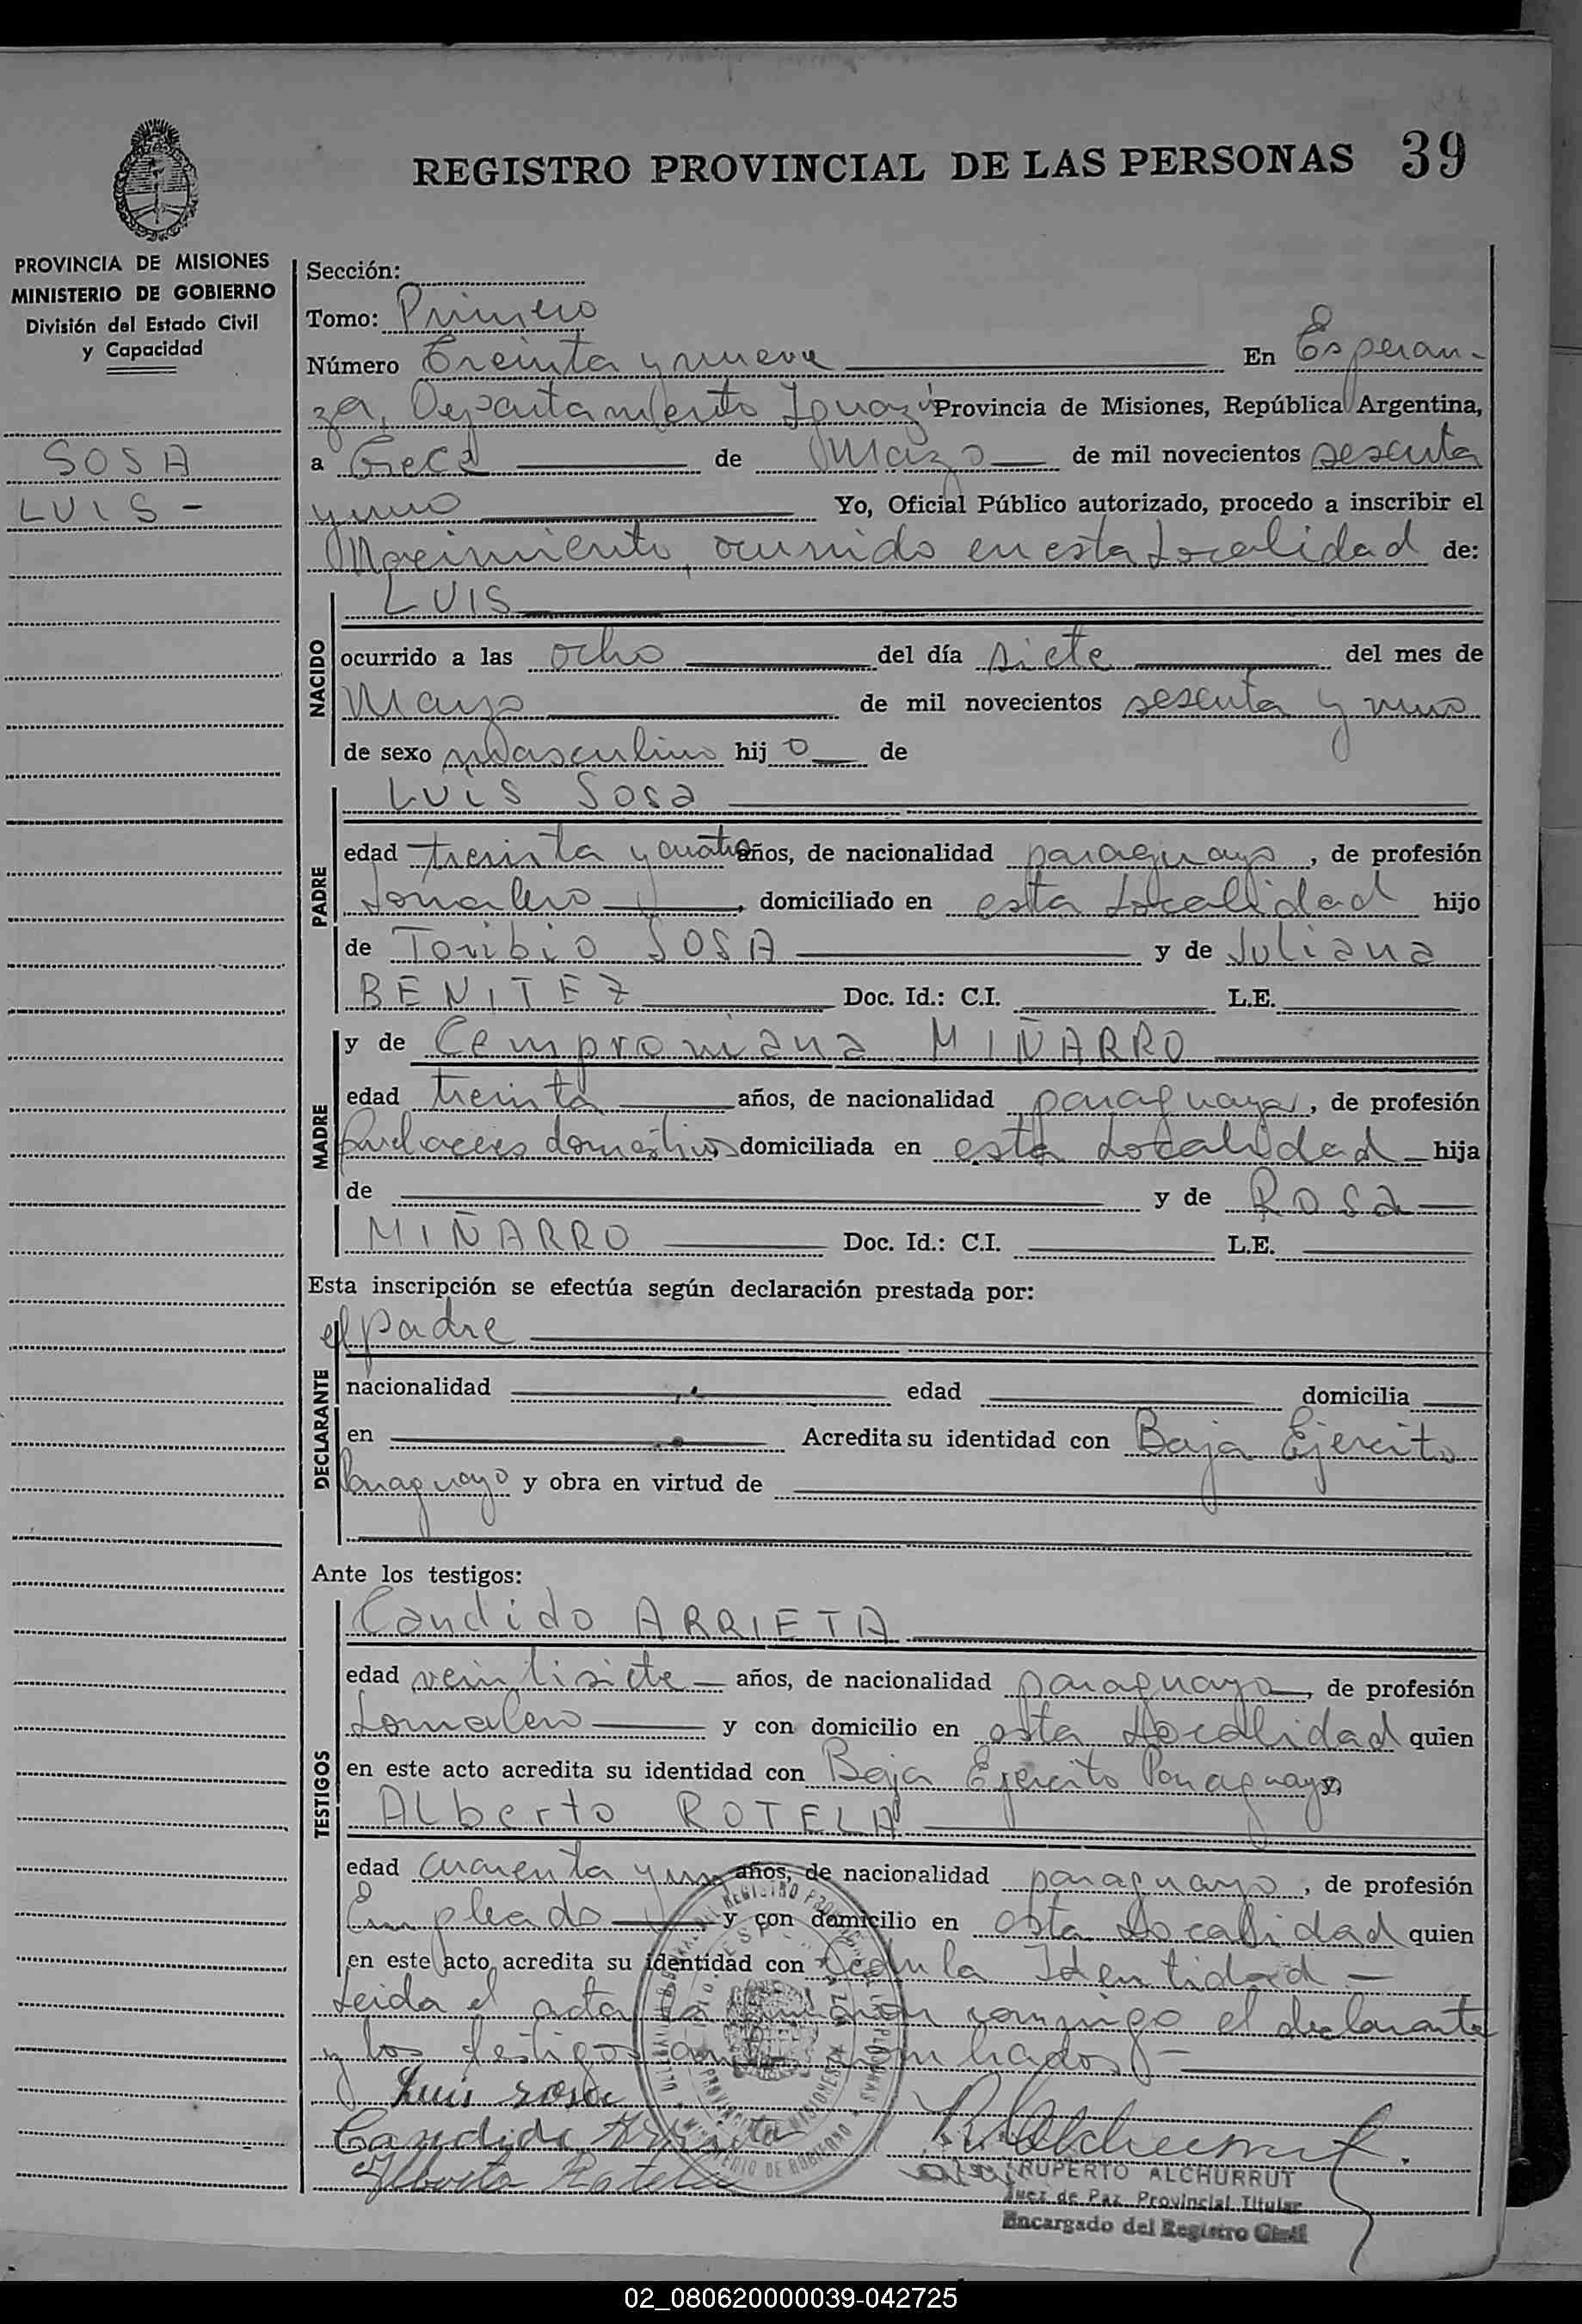 REGISTRO PROVINCIAL DE LAS PERSONAS 39
PROVINCIA DE MISIONES
MINISTERIO DE GOBIERNO
División del Estado Civil
y Capacidad
SOSA
LUIS -
Sección:
Tomo: Primero
Número Treinta y nueve En Esperan-
za, Departamento Iguazú Provincia de Misiones, República Argentina,
a Trece de Mayo de mil novecientos sesenta
y uno Yo, Oficial Público autorizado, procedo a inscribir el
Nacimiento, ocurrido en esta Localidad de:
NACIDO
LUIS
ocurrido a las ocho del día siete del mes de
Mayo de mil novecientos sesenta y uno
de sexo masculino hijo de
PADRE
LUIS Sosa
edad treinta y cuatro años, de nacionalidad paraguayo, de profesión
Jornalero, domiciliado en esta Localidad hijo
de Toribio SOSA y de Juliana
BENITEZ Doc. Id.: C.I. L.E.
MADRE
y de Cemproniana MIÑARRO
edad treinta años, de nacionalidad paraguaya, de profesión
quehaceres domésticos domiciliada en esta Localidad hija
de y de Rosa
MIÑARRO Doc. Id.: C.I. L.E.
Esta inscripción se efectúa según declaración prestada por:
DECLARANTE
el padre
nacionalidad edad domicilia
en Acredita su identidad con Baja Ejercito
Paraguayo y obra en virtud de
Ante los testigos:
TESTIGOS
Candido ARRIETA
edad veintisiete años, de nacionalidad paraguayo, de profesión
Jornalero y con domicilio en esta Localidad quien
en este acto acredita su identidad con Baja Ejercito Paraguayo y,
Alberto ROTELA
edad cuarenta y un años, de nacionalidad paraguayo, de profesión
Empleado y con domicilio en esta Localidad quien
en este acto acredita su identidad con Cedula Identidad -
Leida el acta la firman conmigo el declarante
y los testigos antes nombrados -
Luis sosa
Candido Arrieta
Alberto Rotela
RUPERTO ALCHURRUT
Juez de Paz Provincial Titular
Encargado del Registro Civil
02_080620000039-042725